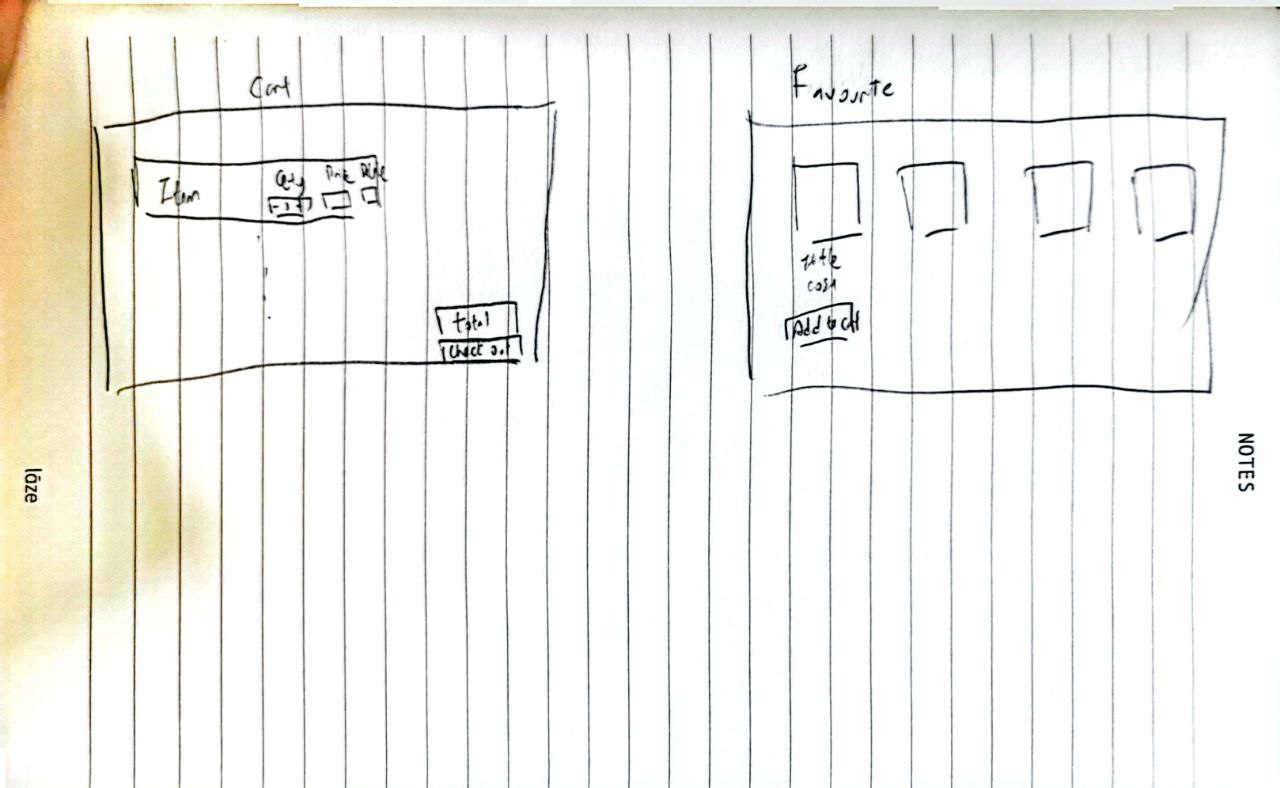 Cart
Item
Qty Price Delete
- 1 +
Total
Check out
Favourite
Title
cost
Add to cart
NOTES
lāze